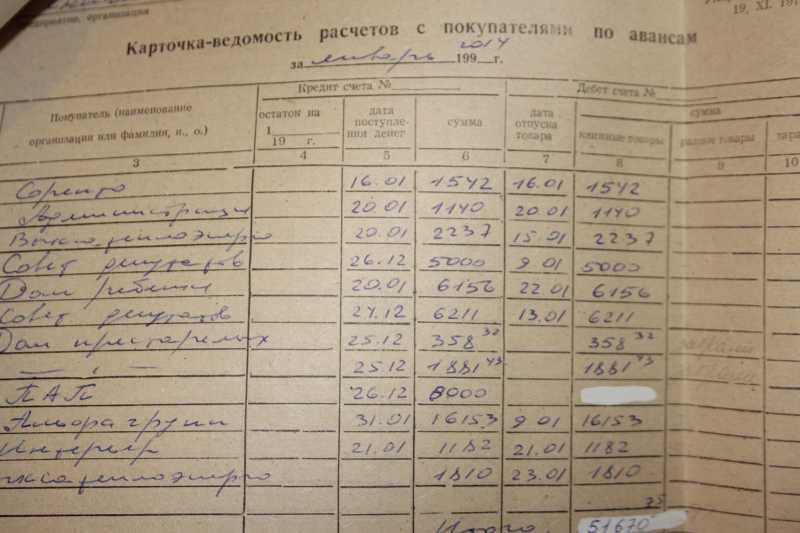 предприятие, организация
19, XI. 19
Карточка-ведомость расчетов с покупателями по авансам
за январь 2014 199 г.
Кредит счета № Дебет счета №
Покупатель (наименование организации или фамилия, и., о.) остаток на 1 19 г. дата поступления денег сумма дата отпуска товара сумма книжные товары разные товары тара
3 4 5 6 7 8 9 10
Соренто 16.01 1542 16.01 1542
Администрация 20.01 1140 20.01 1140
Выксатеплоэнерго 20.01 2237 15.01 2237
Совет депутатов 26.12 5000 9 01 5000
Дом ребенка 20.01 6156 22 01 6156
Совет депутатов 27.12 6211 13.01 6211
Дом престарелых 25.12 358 32 358 32
— " — 25.12 1881 43 1881 43
ПАП 26.12 8000
групп 31.01 16153 9 01 16153
Интерьер 21.01 1182 21.01 1182
ыксатеплоэнерго 1810 23.01 1810
Итого 51670 75